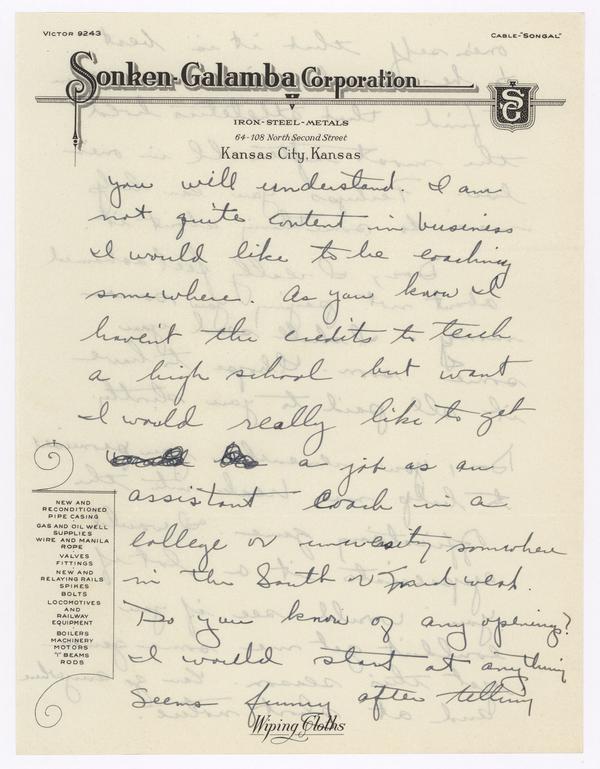 VICTOR 9243
CABLE-"SONGAL"
Sonken-Galamba Corporation
SG
IRON-STEEL-METALS
64-108 North Second Street
Kansas City, Kansas
you will understand. I am
not quite content in business
I would like to be coaching
somewhere. As you know I
haven't the credits to teach
a high school but want
I would really like to get
a job as an
assistant coach in a
college or university somewhere
in the South or mid west.
Do you know of any openings?
I would start at anything
Seems funny after telling
NEW AND
RECONDITIONED
PIPE CASING
GAS AND OIL WELL
SUPPLIES
WIRE AND MANILA
ROPE
VALVES
FITTINGS
NEW AND
RELAYING RAILS
SPIKES
BOLTS
LOCOMOTIVES
AND
RAILWAY
EQUIPMENT
BOILERS
MACHINERY
MOTORS
"I" BEAMS
RODS
Wiping Cloths